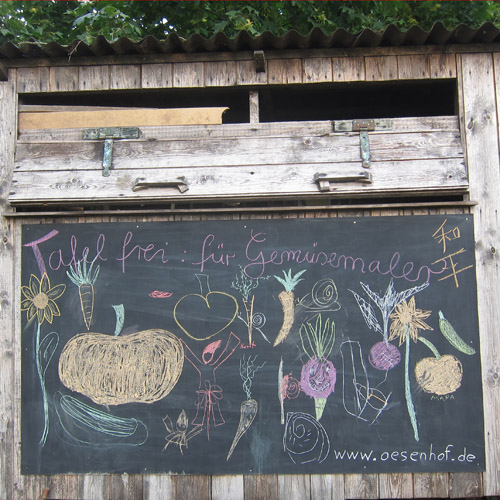 Tafel frei : für Gemüsemaler
和
平
MAYA
www.oesenhof.de